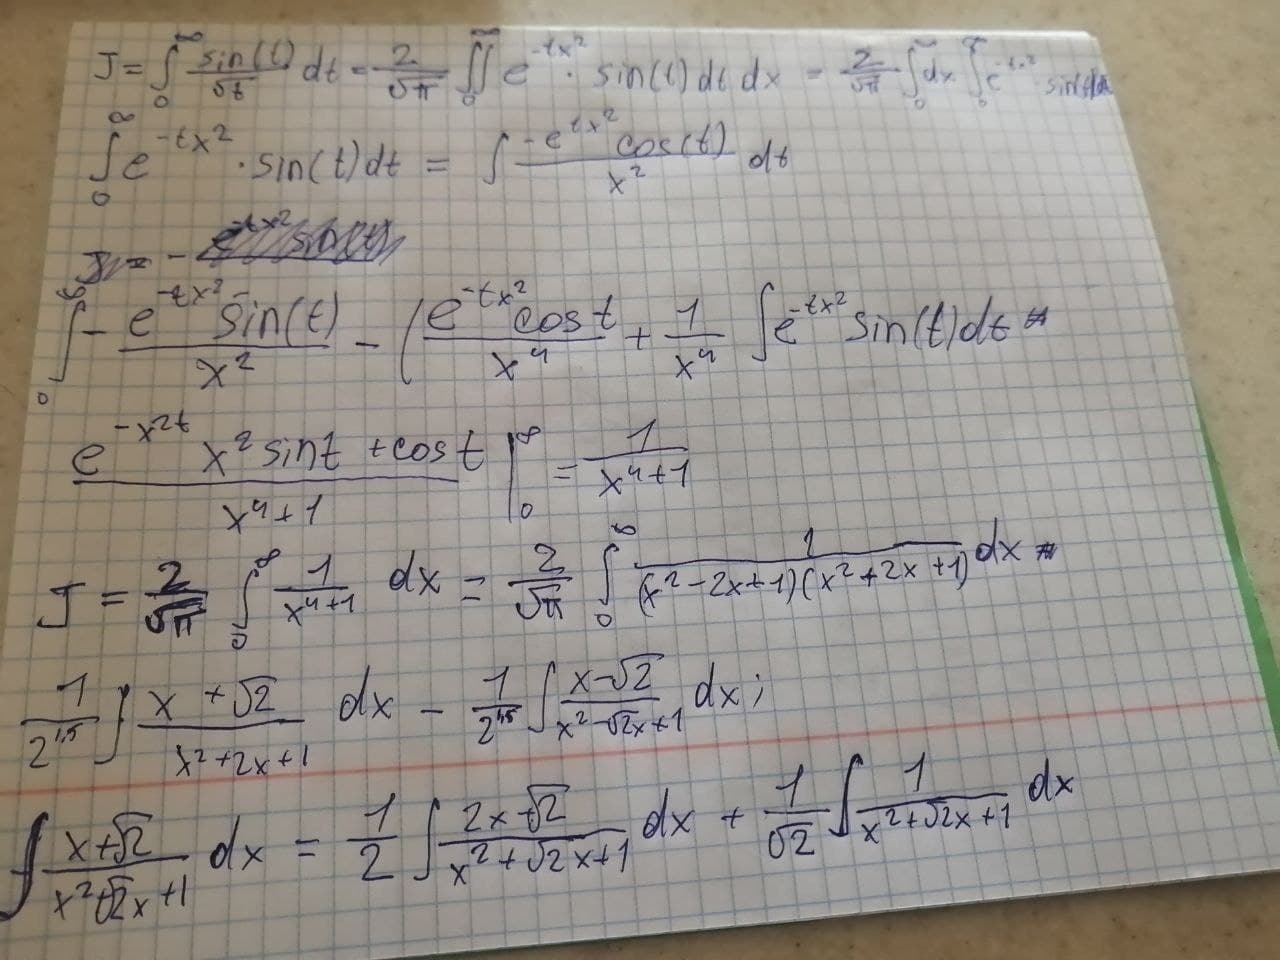 J = ∫₀^∞ sin(t)/√t dt = 2/√π ∬₀^∞ e^(-tx²) · sin(t) dt dx = 2/√π ∫₀^∞ dx ∫₀^∞ e^(-tx²) sin(t)dt
∫₀^∞ e^(-tx²) · sin(t) dt = ∫ (-e^(tx²) cos(t))/x² dt
∫₀^∞ - (e^(-tx²) sin(t))/x² - ( (e^(-tx²) cos t)/x⁴ + 1/x⁴ ∫ e^(-tx²) sin(t) dt =
(e^(-x²t) x² sint + cost)/(x⁴+1) |₀^∞ = 1/(x⁴+1)
J = 2/√π ∫₀^∞ 1/(x⁴+1) dx = 2/√π ∫₀^∞ 1/((x²-2x+1)(x²+2x+1)) dx =
1/2^1,5 ∫ (x+√2)/(x²+2x+1) dx - 1/2^1,5 ∫ (x-√2)/(x²-√2x+1) dx;
∫ (x+√2)/(x²+√2x+1) dx = 1/2 ∫ (2x+√2)/(x²+√2x+1) dx + 1/√2 ∫ 1/(x²+√2x+1) dx